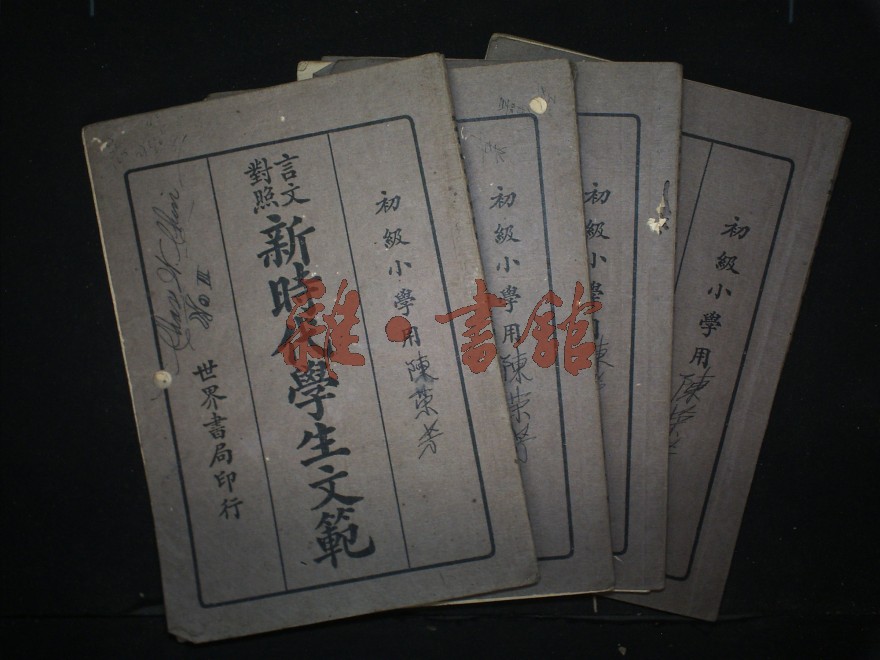 初級小學用
陳榮芳
言文
對照
新時代學生文範
世界書局印行
No III
初級小學用
陳榮芳
初級小學用
陳
初級小學用
陳
雅·書館